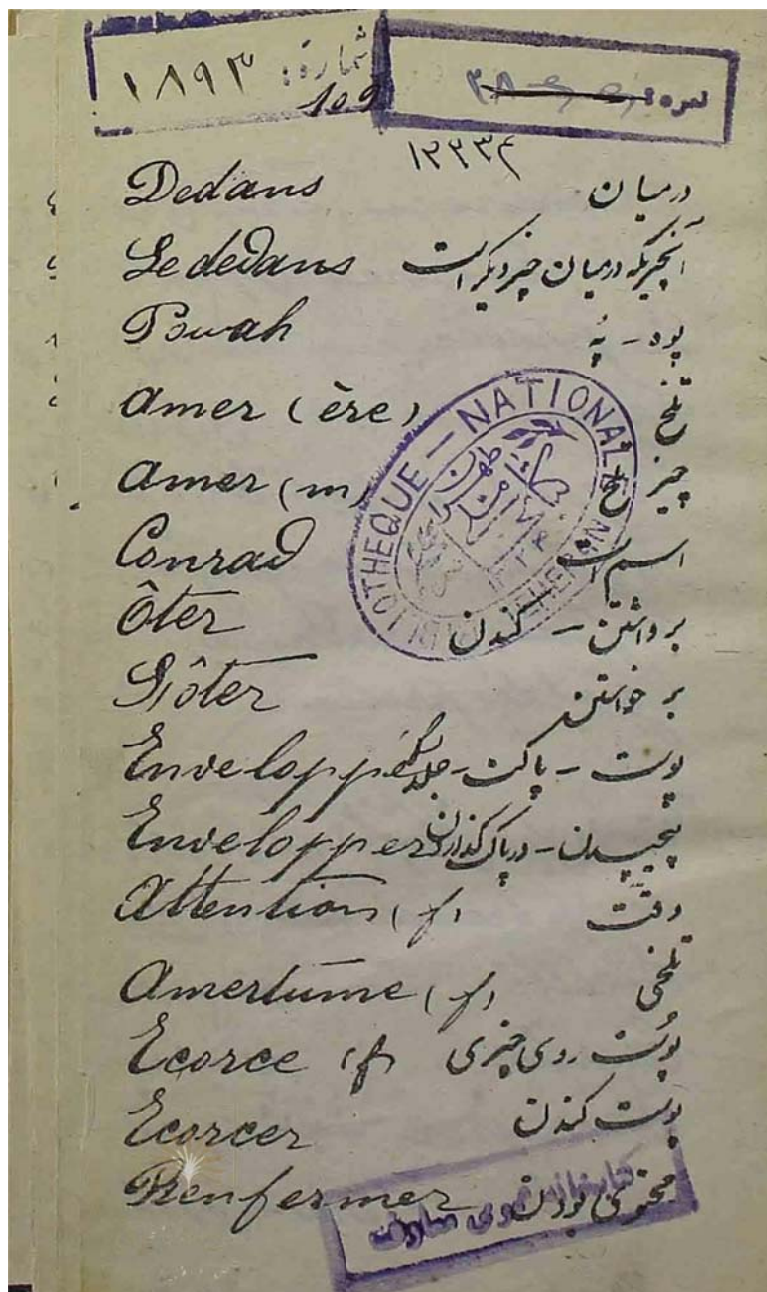 شمارهٔ: ۱۸۹۳
109
نمره
۱۲۳۳۴
Dedans درمیان
Le dedans آنچیزیکه درمیان چیز دیگر است
Pouah پوه - پُه
Amer (ère) تلخ
Amer (m) چیز تلخ
Conrad اسم است
Ôter برداشتن - کندن
S'ôter برخواستن
Enveloppe پوست - پاکت - جلد
Envelopper پیچیدن - درپاکت گذاردن
Attention (f) دقّت
Amertume (f) تلخی
Ecorce (f) پوست روی چیزی
Ecorcer پوست کندن
Renfermer محتوی بودن
BIBLIOTHEQUE - NATIONALE
TEHERAN